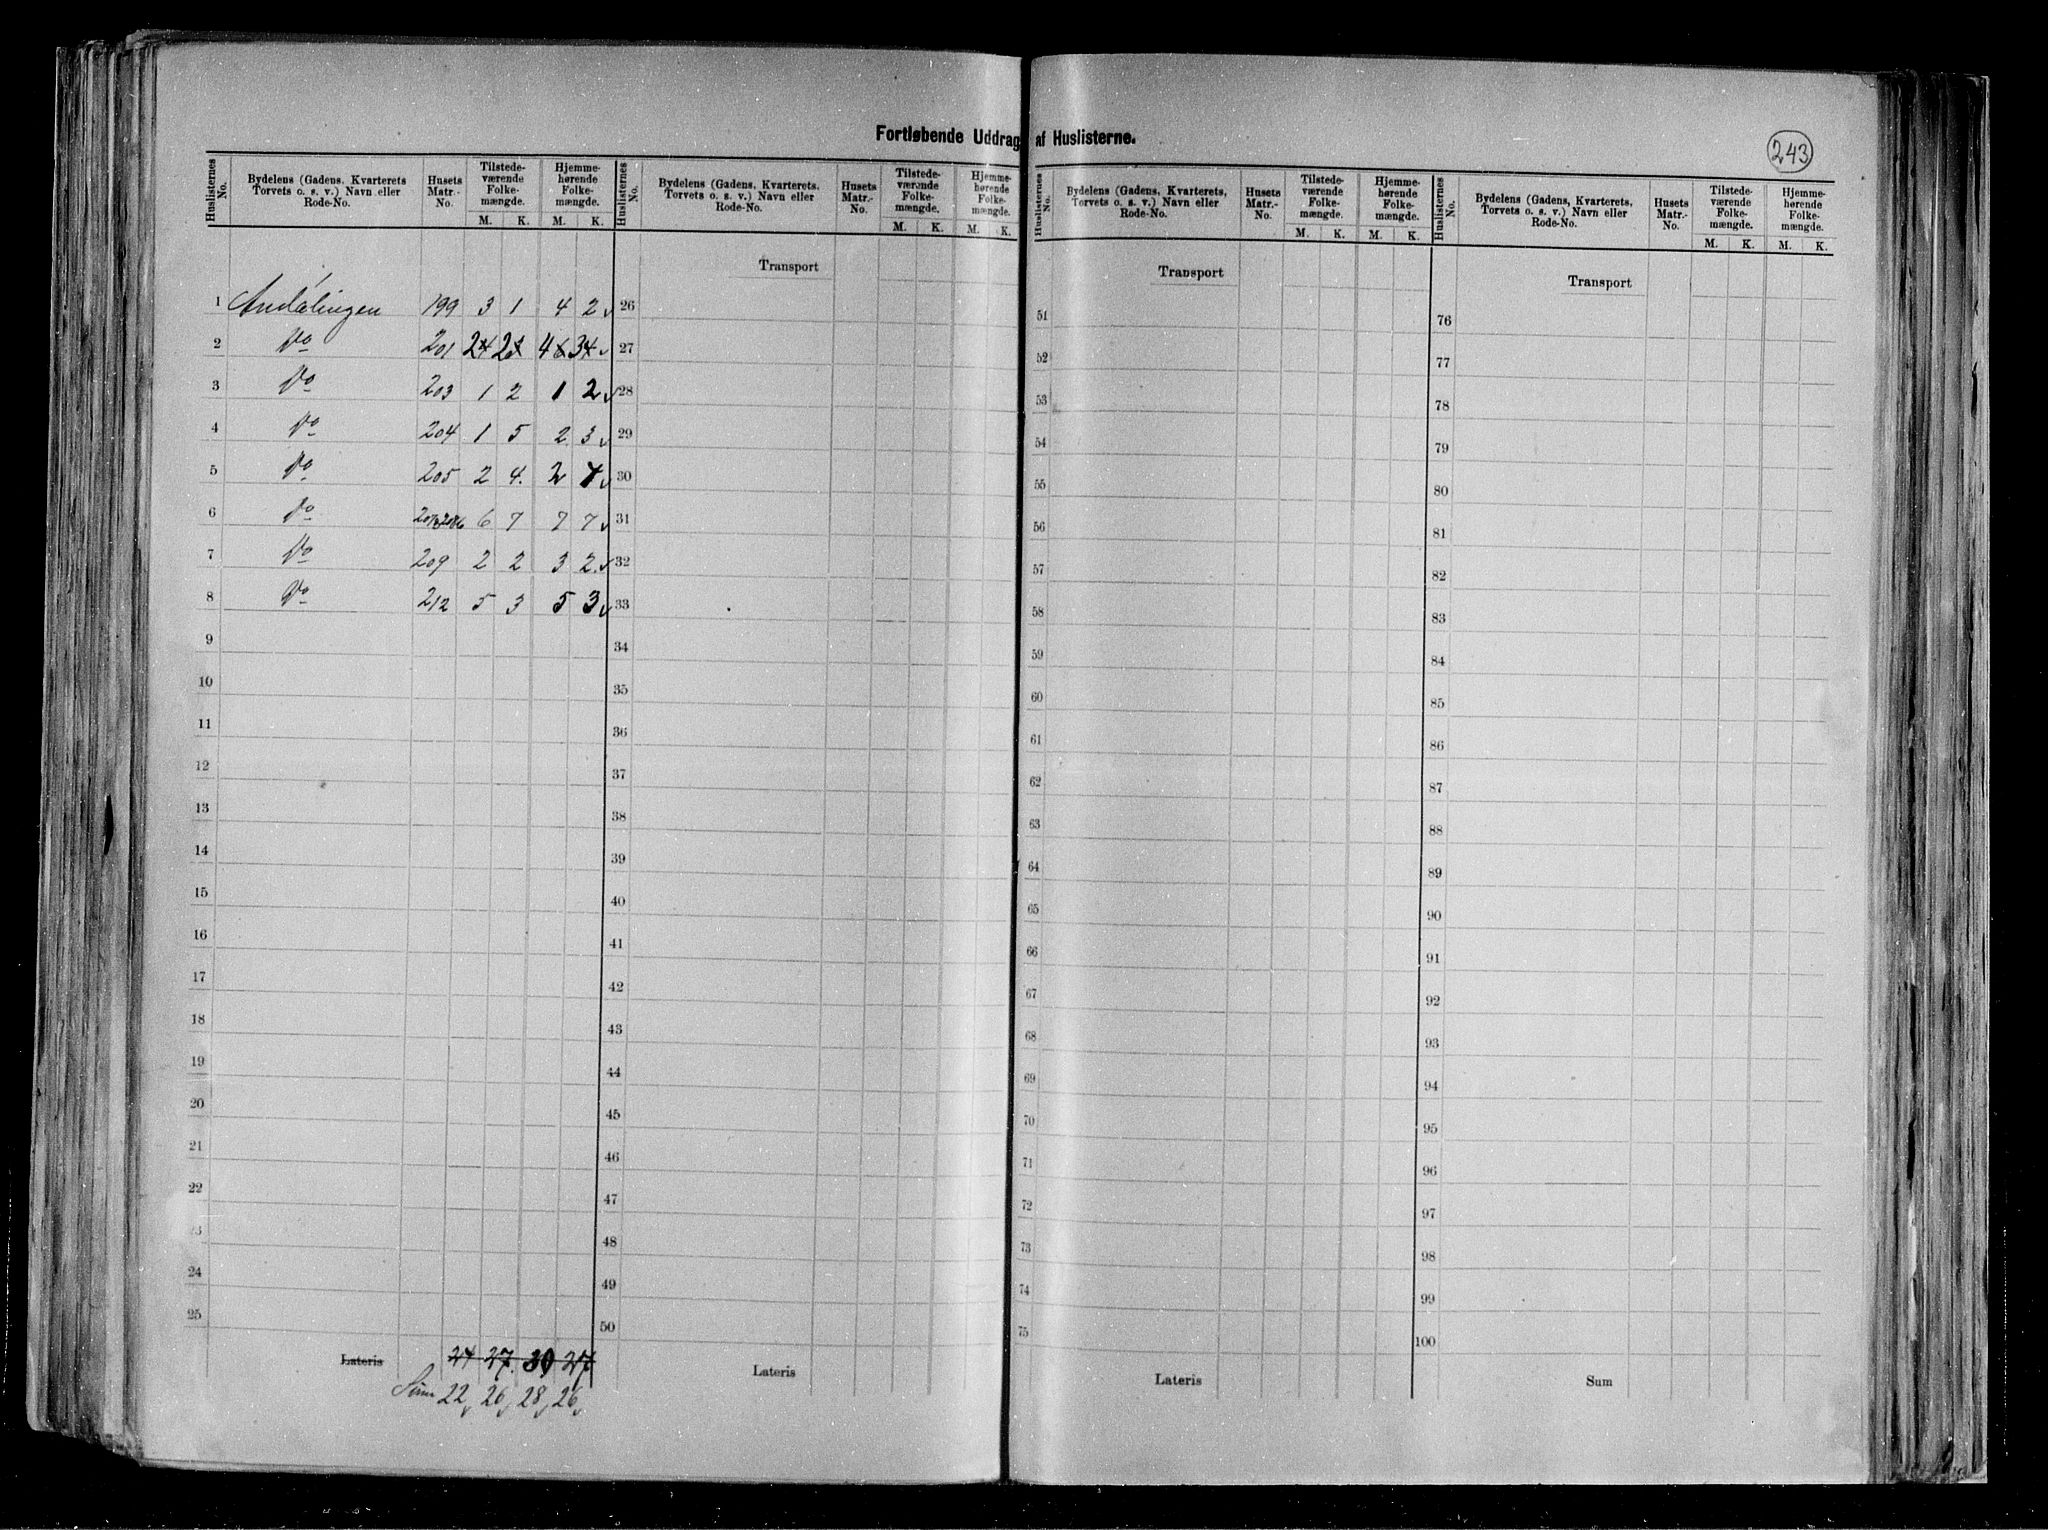 Fortløbende Uddrag af Huslisterne.
243
Huslisternes No. | Bydelens (Gadens, Kvarterets Torvets o. s. v.) Navn eller Rode-No. | Husets Matr.-No. | Tilstedeværende Folkemængde. M. K. | Hjemmehørende Folkemængde. M. K.
Huslisternes No. | Bydelens (Gadens, Kvarterets, Torvets o. s. v.) Navn eller Rode-No. | Husets Matr.-No. | Tilstedeværende Folkemængde. M. K. | Hjemmehørende Folkemængde. M. K.
Huslisternes No. | Bydelens (Gadens, Kvarterets, Torvets o. s. v.) Navn eller Rode-No. | Husets Matr.-No. | Tilstedeværende Folkemængde. M. K. | Hjemmehørende Folkemængde. M. K.
Huslisternes No. | Bydelens (Gadens, Kvarterets, Torvets o. s. v.) Navn eller Rode-No. | Husets Matr.-No. | Tilstedeværende Folkemængde. M. K. | Hjemmehørende Folkemængde. M. K.
Transport Transport Transport
1 199 3 1 4 2 26 51 76
2 Do 201 2 2 4 3 27 52 77
3 Do 203 1 2 1 2 28 53 78
4 Do 204 1 5 2 3 29 54 79
5 Do 205 2 4. 2 4 30 55 80
6 Do 6 7 7 7 31 56 81
7 Do 209 2 2 3 2 32 57 82
8 Do 212 5 3 5 3 33 58 83
9 34 59 84
10 35 60 85
11 36 61 86
12 37 62 87
13 38 63 88
14 39 64 89
15 40 65 90
16 41 66 91
17 42 67 92
18 43 68 93
19 44 69 94
20 45 70 95
21 46 71 96
22 47 72 97
23 48 73 98
24 49 74 99
25 50 75 100
Lateris 24 27. 30 27 Lateris Lateris Sum
Sum 22 26 28 26